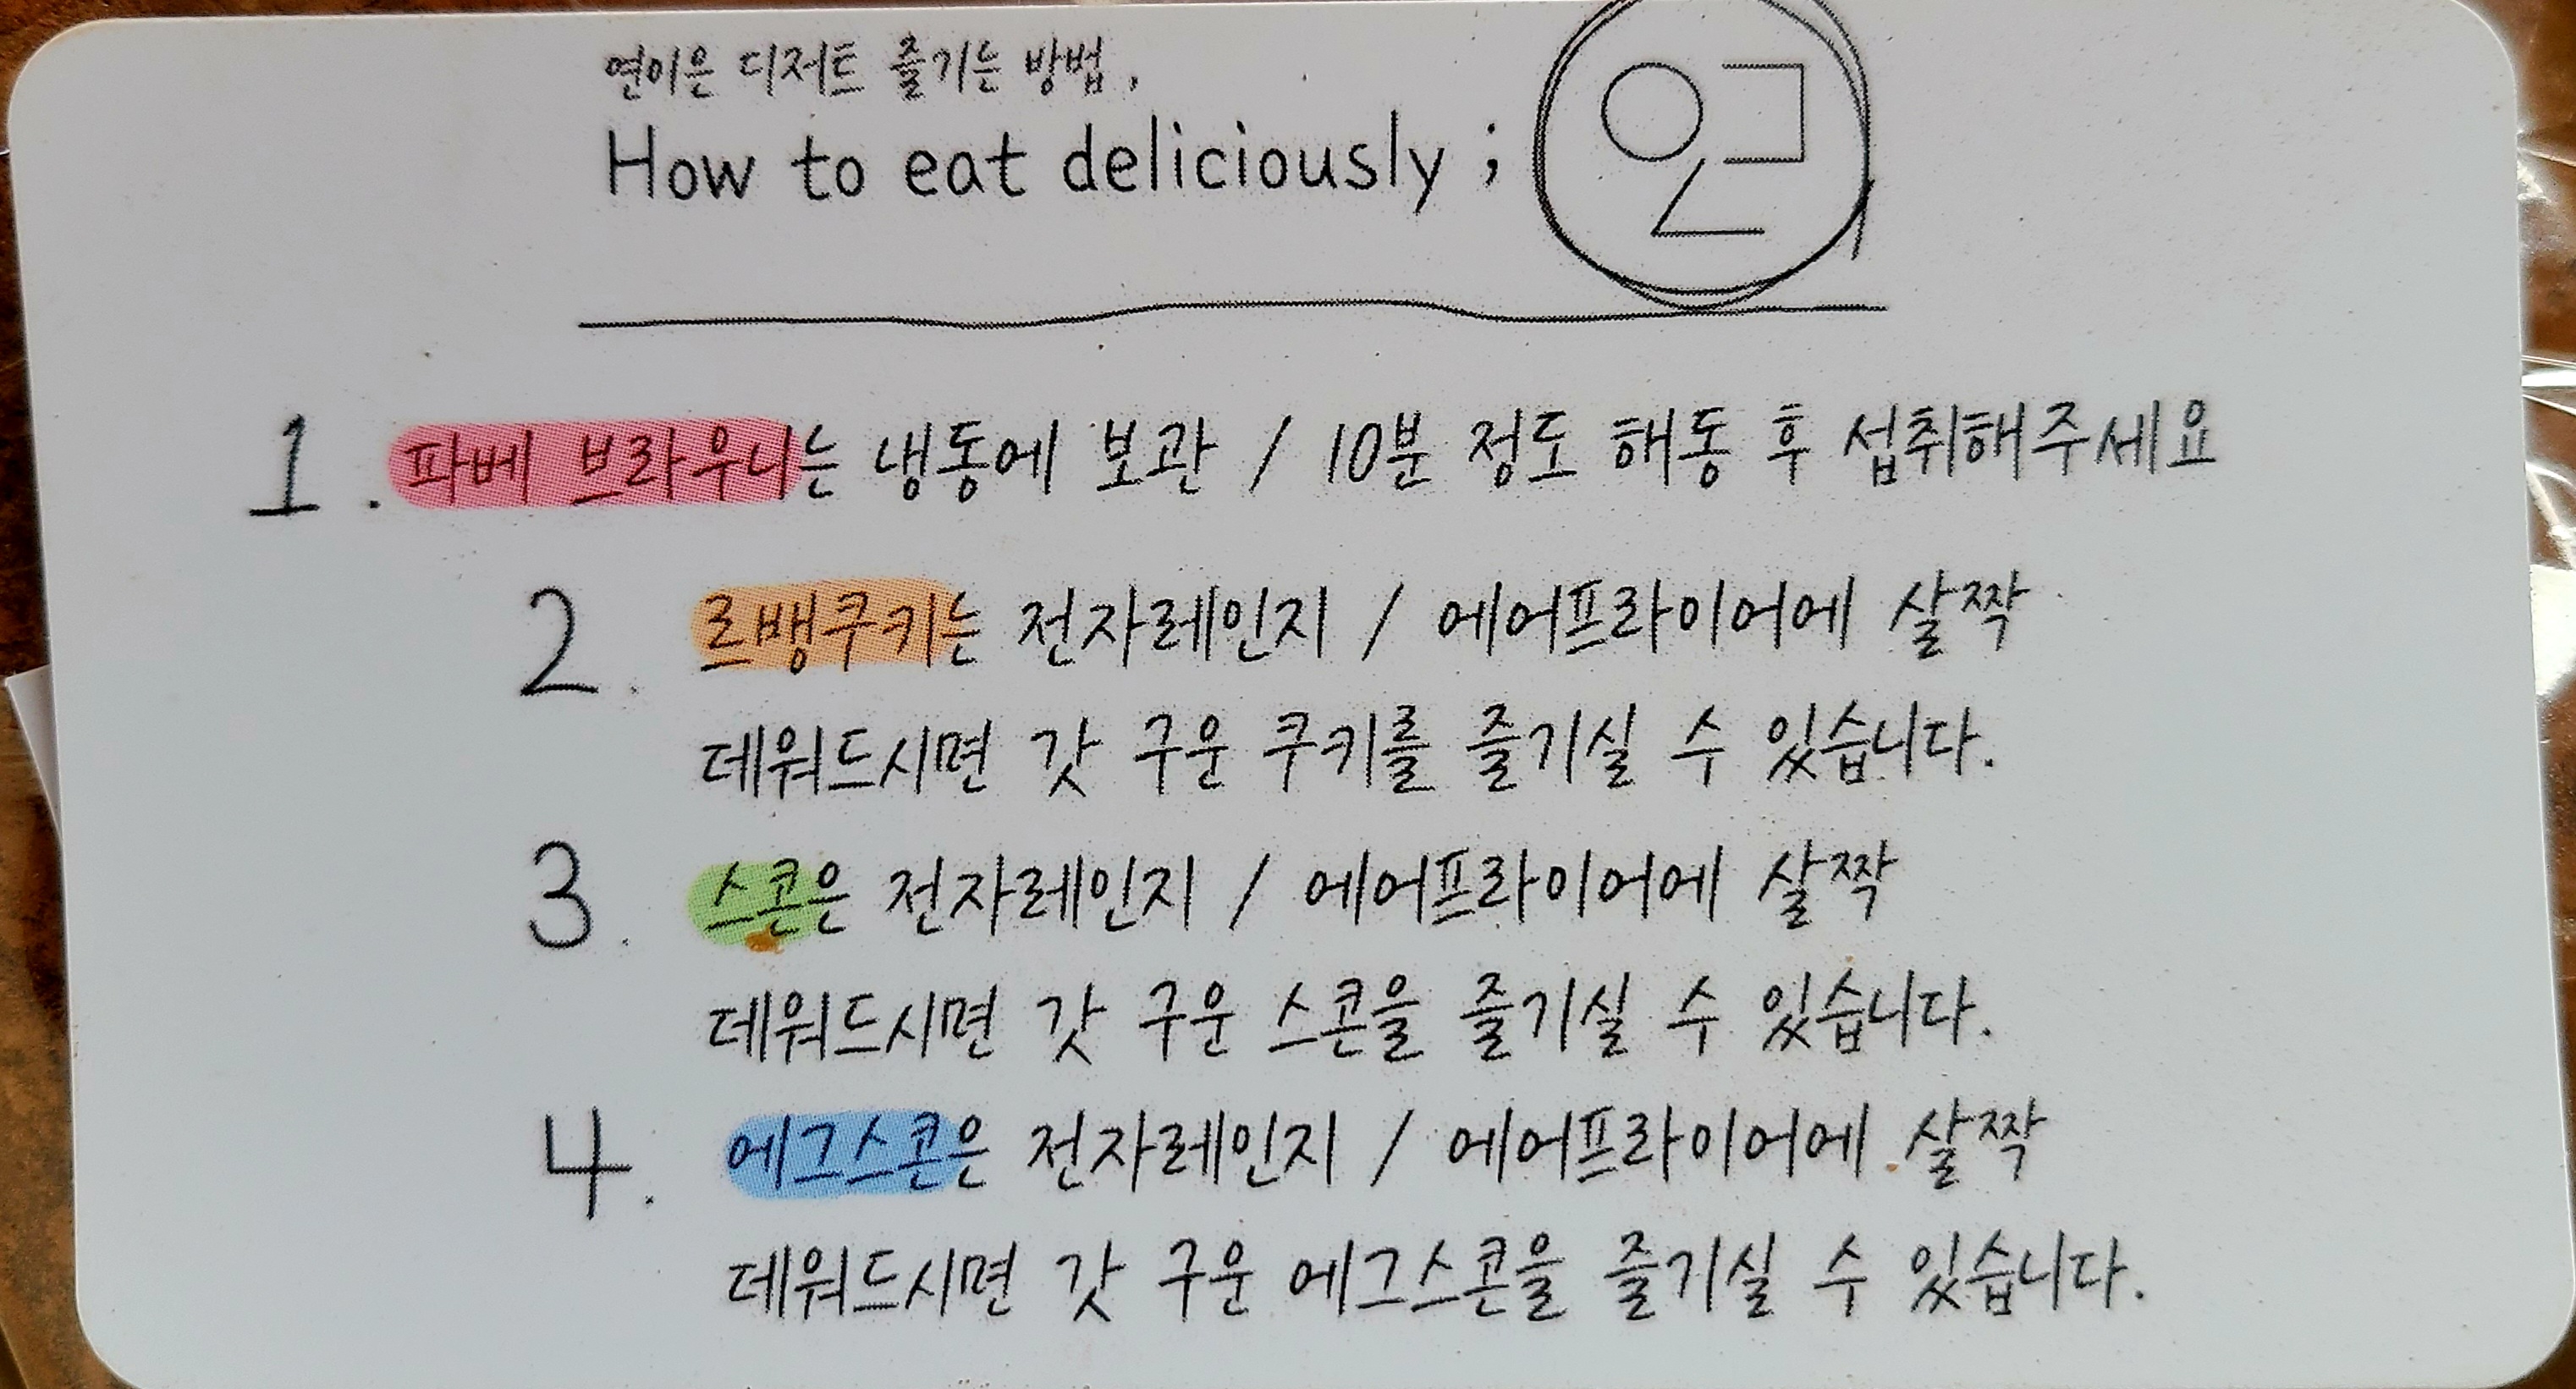 연이은 디저트 즐기는 방법,
How to eat deliciously ;
1. 파베 브라우니는 냉동에 보관 / 10분 정도 해동 후 섭취해주세요
2. 르뱅쿠키는 전자레인지 / 에어프라이어에 살짝
데워드시면 갓 구운 쿠키를 즐기실 수 있습니다.
3. 스콘은 전자레인지 / 에어프라이어에 살짝
데워드시면 갓 구운 스콘을 즐기실 수 있습니다.
4. 에그스콘은 전자레인지 / 에어프라이어에 살짝
데워드시면 갓 구운 에그스콘을 즐기실 수 있습니다.